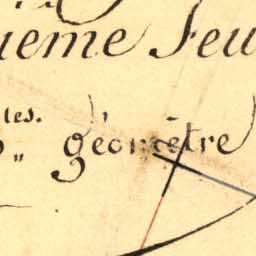 ième Feu
les.
géomètre